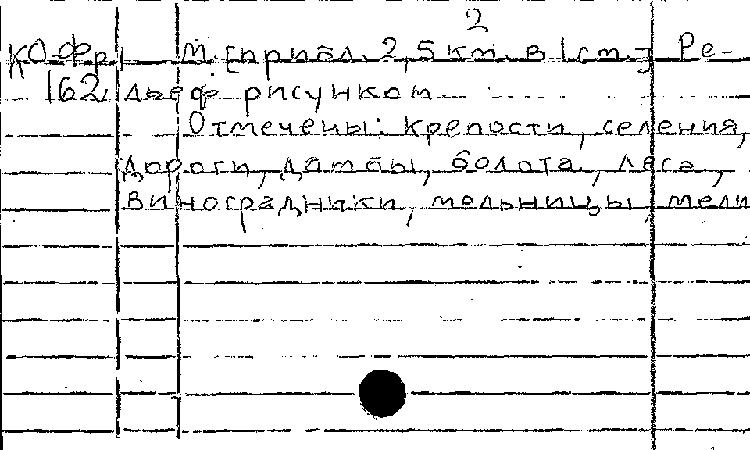 2
КО Фр. М. [прибл. 2,5 км. в 1 см.] Ре-
162 льеф рисунком
Отмечены: крепости, селения,
дороги, дамбы, болота, леса,
виноградники, мельницы, мели